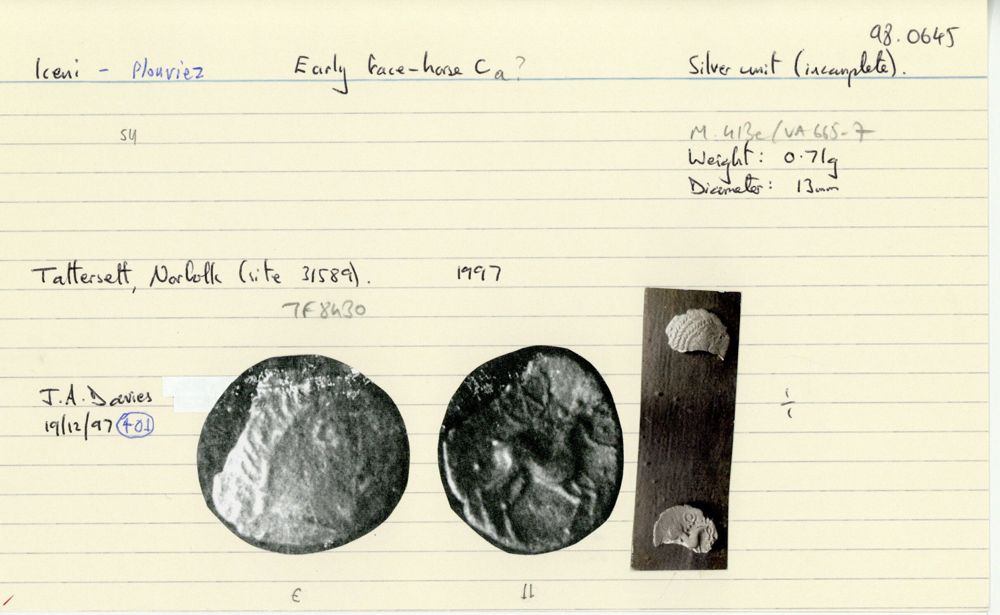 98.0645
Iceni - Plouviez Early face-horse Ca? Silver unit (incomplete).
54 M. 413e/VA 665-7
Weight: 0.71g
Diameter: 13mm
Tattersett, Norfolk (site 31589). 1997
TF8430
J.A. Davies
19/12/97 401
3 11